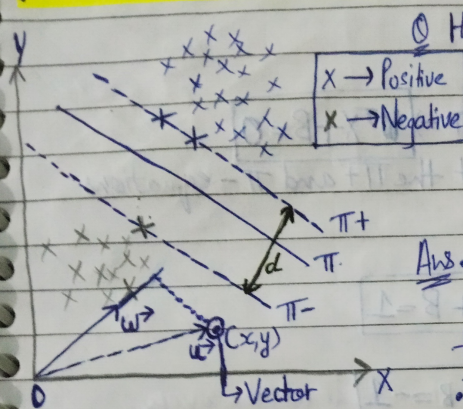 Y
Q H
X → Positive
X → Negative
π+
π
d
Ans.
π-
w
(x,y)
u
X
0
→ Vector